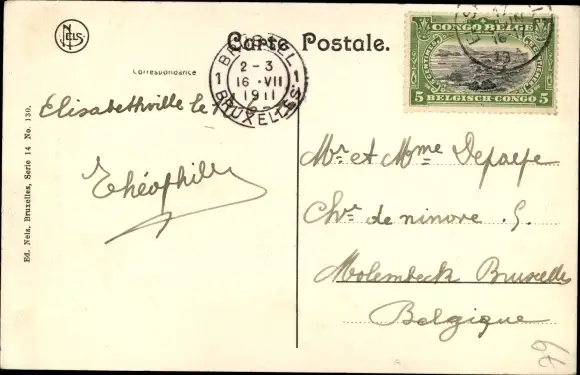 NELS
Carte Postale.
CONGO BELGE
5 CENTIMES
VIJF CENTIEMEN
5 BELGISCH-CONGO 5
Correspondance
BRUSSEL
1 1
2-3
16 · VII
1911
BRUXELLES
Elisabethville le
Théophile
Mr et Mme Depaepe
Chée de ninove 5.
Molembeck Bruxelles
Belgique
66
Ed. Nels, Bruxelles, Serie 14 No. 130.